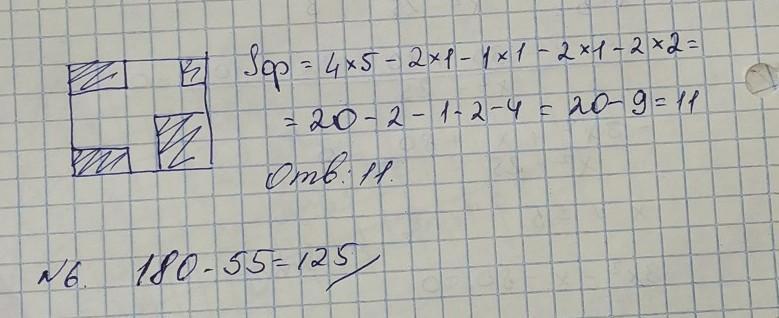 Sф = 4×5 - 2×1 - 1×1 - 2×1 - 2×2 =
= 20 - 2 - 1 - 2 - 4 = 20 - 9 = 11
Отв: 11.
№6. 180 - 55 = 125